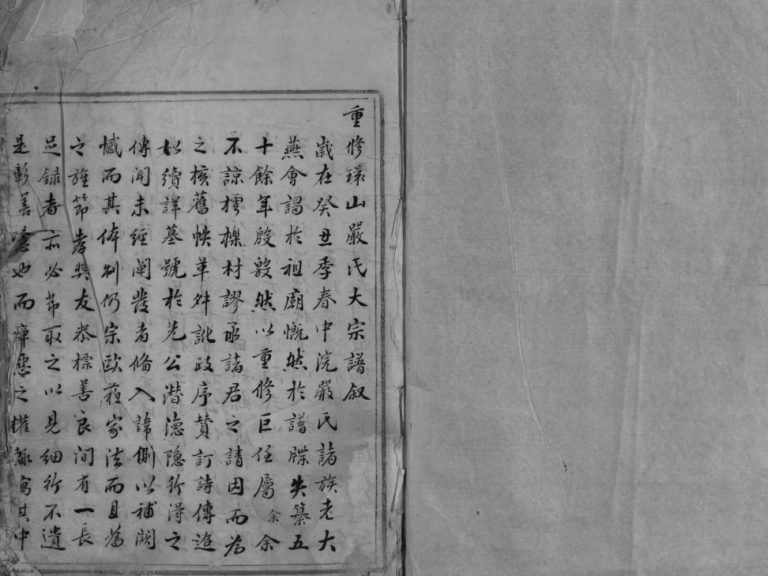 重修環山嚴氏大宗譜叙
歲在癸丑季春中浣嚴氏諸族老大
燕會謁於祖廟慨然於譜牒失纂五
十餘年殷殷然以重修巨任屬余余
不諒樗櫟材謬承諸君之請因而為
之核舊帙革舛訛政序贊訂詩傳追
始續詳墓號於先公潛德隱行得之
傳聞未經闡發者條入諱側以補闕
憾而其体制仍宗歐蘇家法而且為
之旌節孝奬友恭標善良間有一長
足錄者亦必節取之以見細行不遺
是彰善意也而癉惡之權輒寓其中